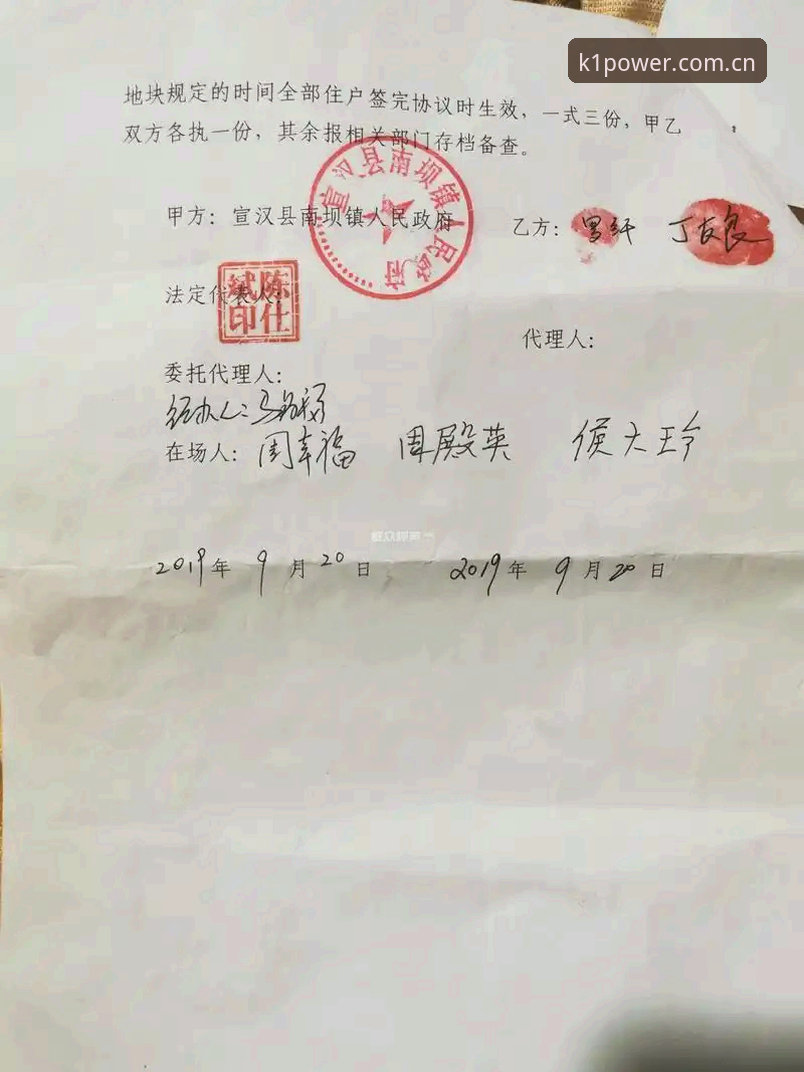 k1power.com.cn
地块规定的时间全部住户签完协议时生效，一式三份，甲乙
双方各执一份，其余报相关部门存档备查。
宣汉县南坝镇人民政府
甲方：宣汉县南坝镇人民政府
乙方： 丁友良
法定代表人：
陈仕斌印
代理人：
委托代理人：
经办人：
在场人：周幸福 周殿英 侯大玲
2019年9月20日 2019年9月20日